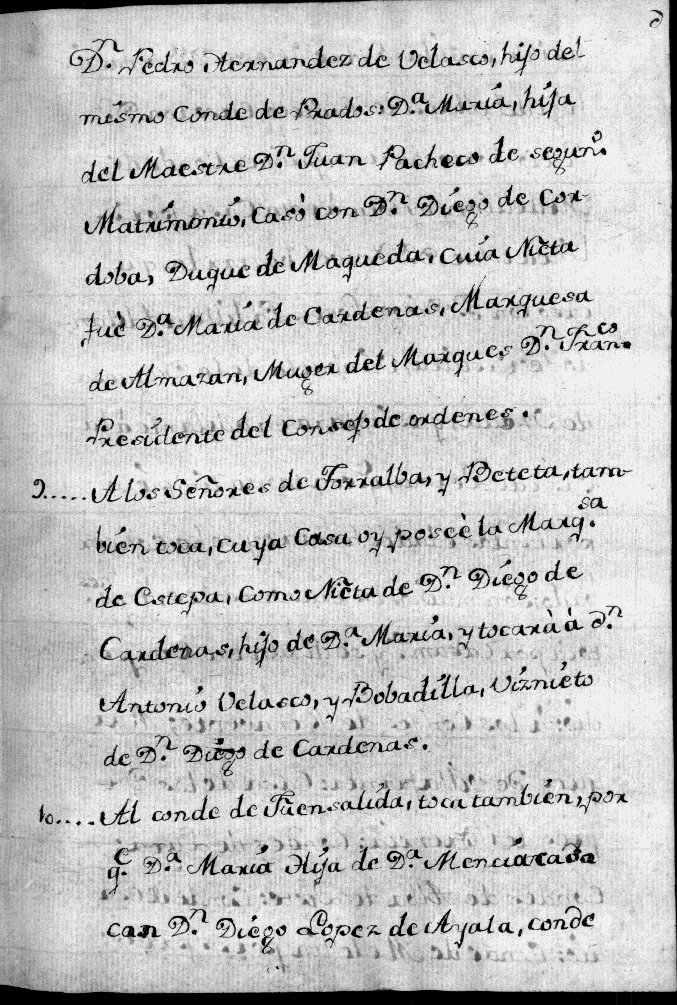 D.ⁿ Pedro Hernandez de Velasco, hijo del
mismo Conde de Prados. D.ª María, hija
del Maestre D.ⁿ Juan Pacheco de segun.º
Matrimonio, Casò con D.ⁿ Diego de Cor-
doba, Duque de Maqueda, cuia Nieta
fué D.ª María de Cardenas, Marquesa
de Almazan, Muger del Marques D.ⁿ Fran.co
Presidente del Consejº de ordenes.
9..... A los Señores de Torralba, y Beteta, tam-
bien toca, cuya Casa oy poseè la Marq.sa
de Estepa, Como Nieta de D.ⁿ Diego de
Cardenas, hijo de D.ª María, y tocarà à D.ⁿ
Antonio Velasco, y Bobadilla, Viznieto
de D.ⁿ Diego de Cardenas.
10.... Al conde de Fuensalida, toca tambien, por
q.e D.ª María Hija de D.ª Mencia casò
can D.ⁿ Diego Lopez de Ayala, conde